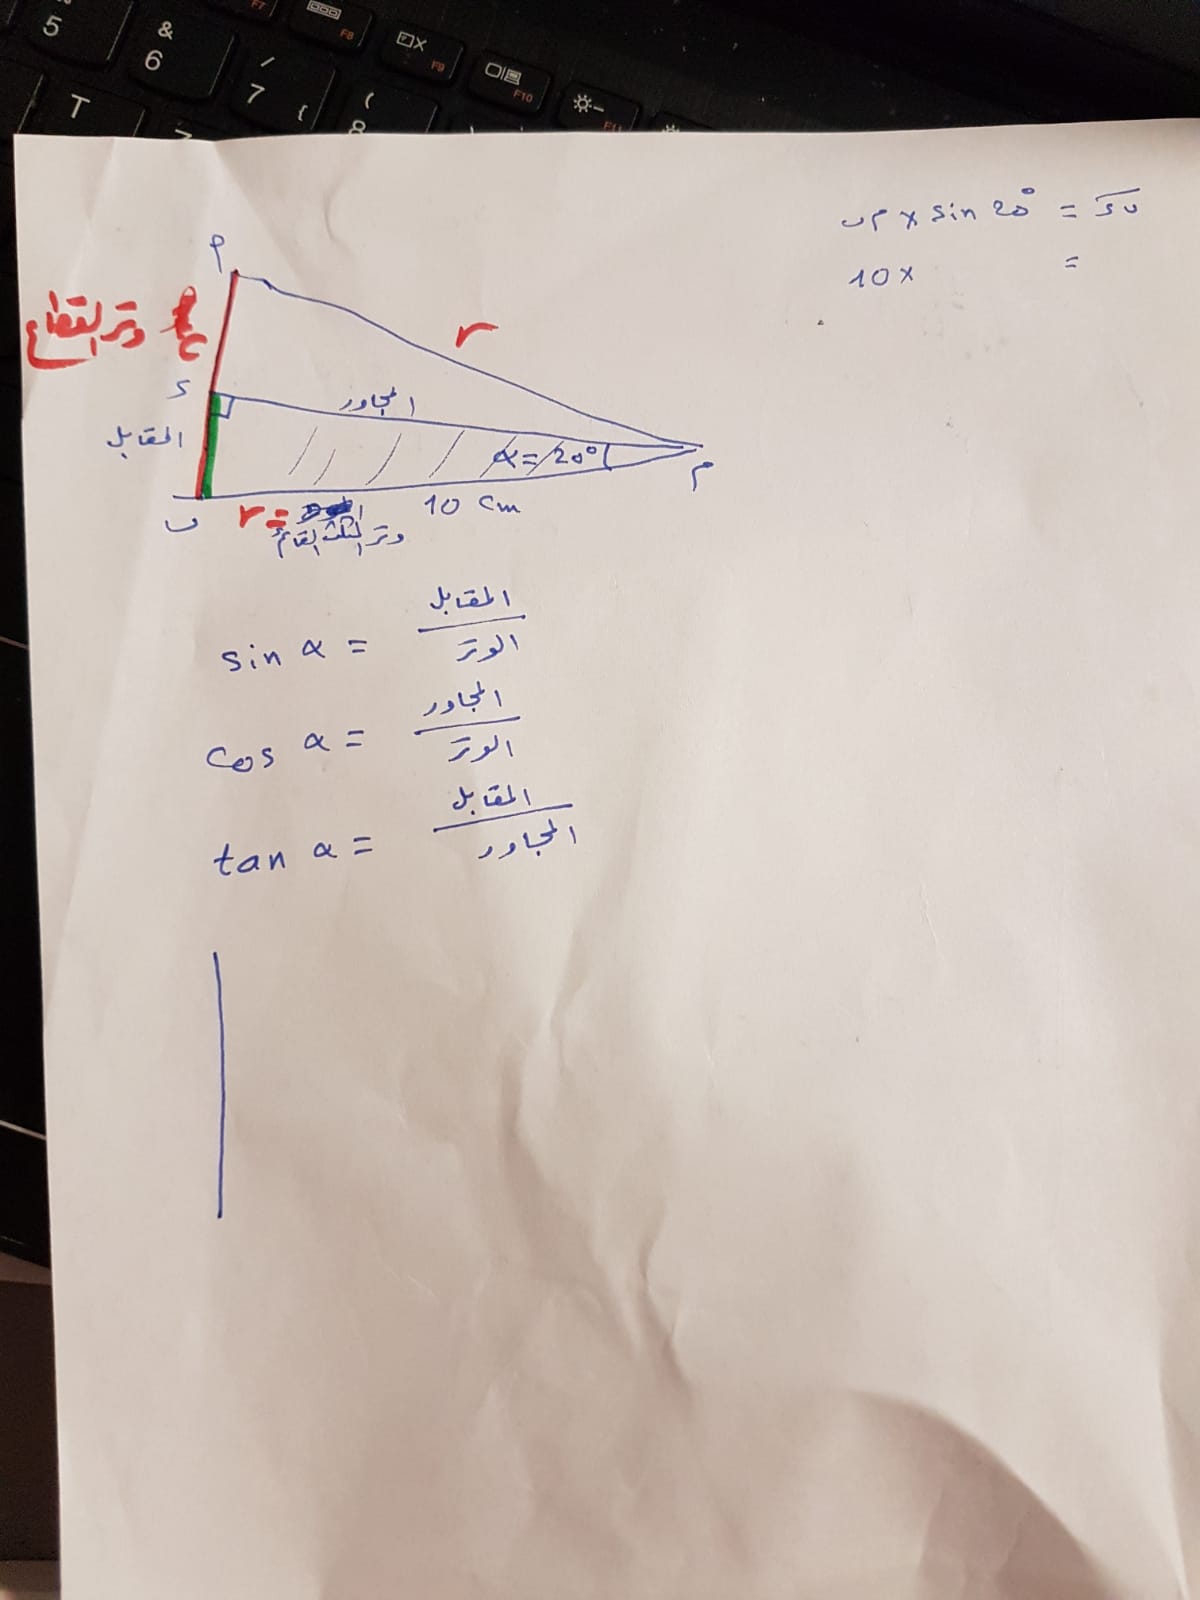 5
&
6
/
7
{
(
8
T
F7
F8
F9
F10
F11
م ب × sin 20° = ب د
10 × =
م
وتر القطاع
r
د
المجاور
المقابل
α = 20°
م
ب
r =
10 cm
وتر المثلث القائم
sin α = المقابل / الوتر
cos α = المجاور / الوتر
tan α = المقابل / المجاور